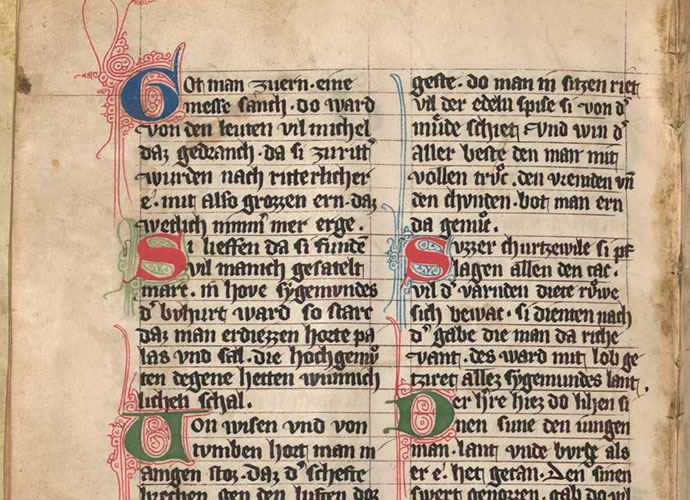 Got man zuern · eine
messe sanch · do ward
von den leuten vil michel
daz gedranch · da si zuritt'
wurden nach ritterlicher
e · mit also grozzen ern · daz
wetlich nimm' mer erge ·
Si lieffen da si fundē
vil manich gesatelt
marc · in hove sygemundes
d' buhurt ward so starc
daz man erdiezzen horte pa
las vnd sal · die hochgemuͦ
ten degene hetten wunnich
lichen schal ·
Von wisen vnd von
tumben hort man m
angen stoz · daz d' schefte
brechen gen den luften doz
geste · do man in sitzen riet
vil der edeln spise si von d'
muͤde schiet vnd win d'
aller beste den man mit
vollen truͦc · den vremden vn̄
den chunden · bot man ern
da genuͦc ·
Suzzer churtzewile si pf
lagen allen den tac ·
vil d' varnden diete ruͦwe
sich bewac · si dienten nach
d' gabe die man da riche
vant · des ward mit lob ge
tziret allez sygemundes lant ·
Der h're hiez do lihen si
nen sune den iungen
man · lant vnde burge als
er e · het getan · Den sinen
swert genozen gab do